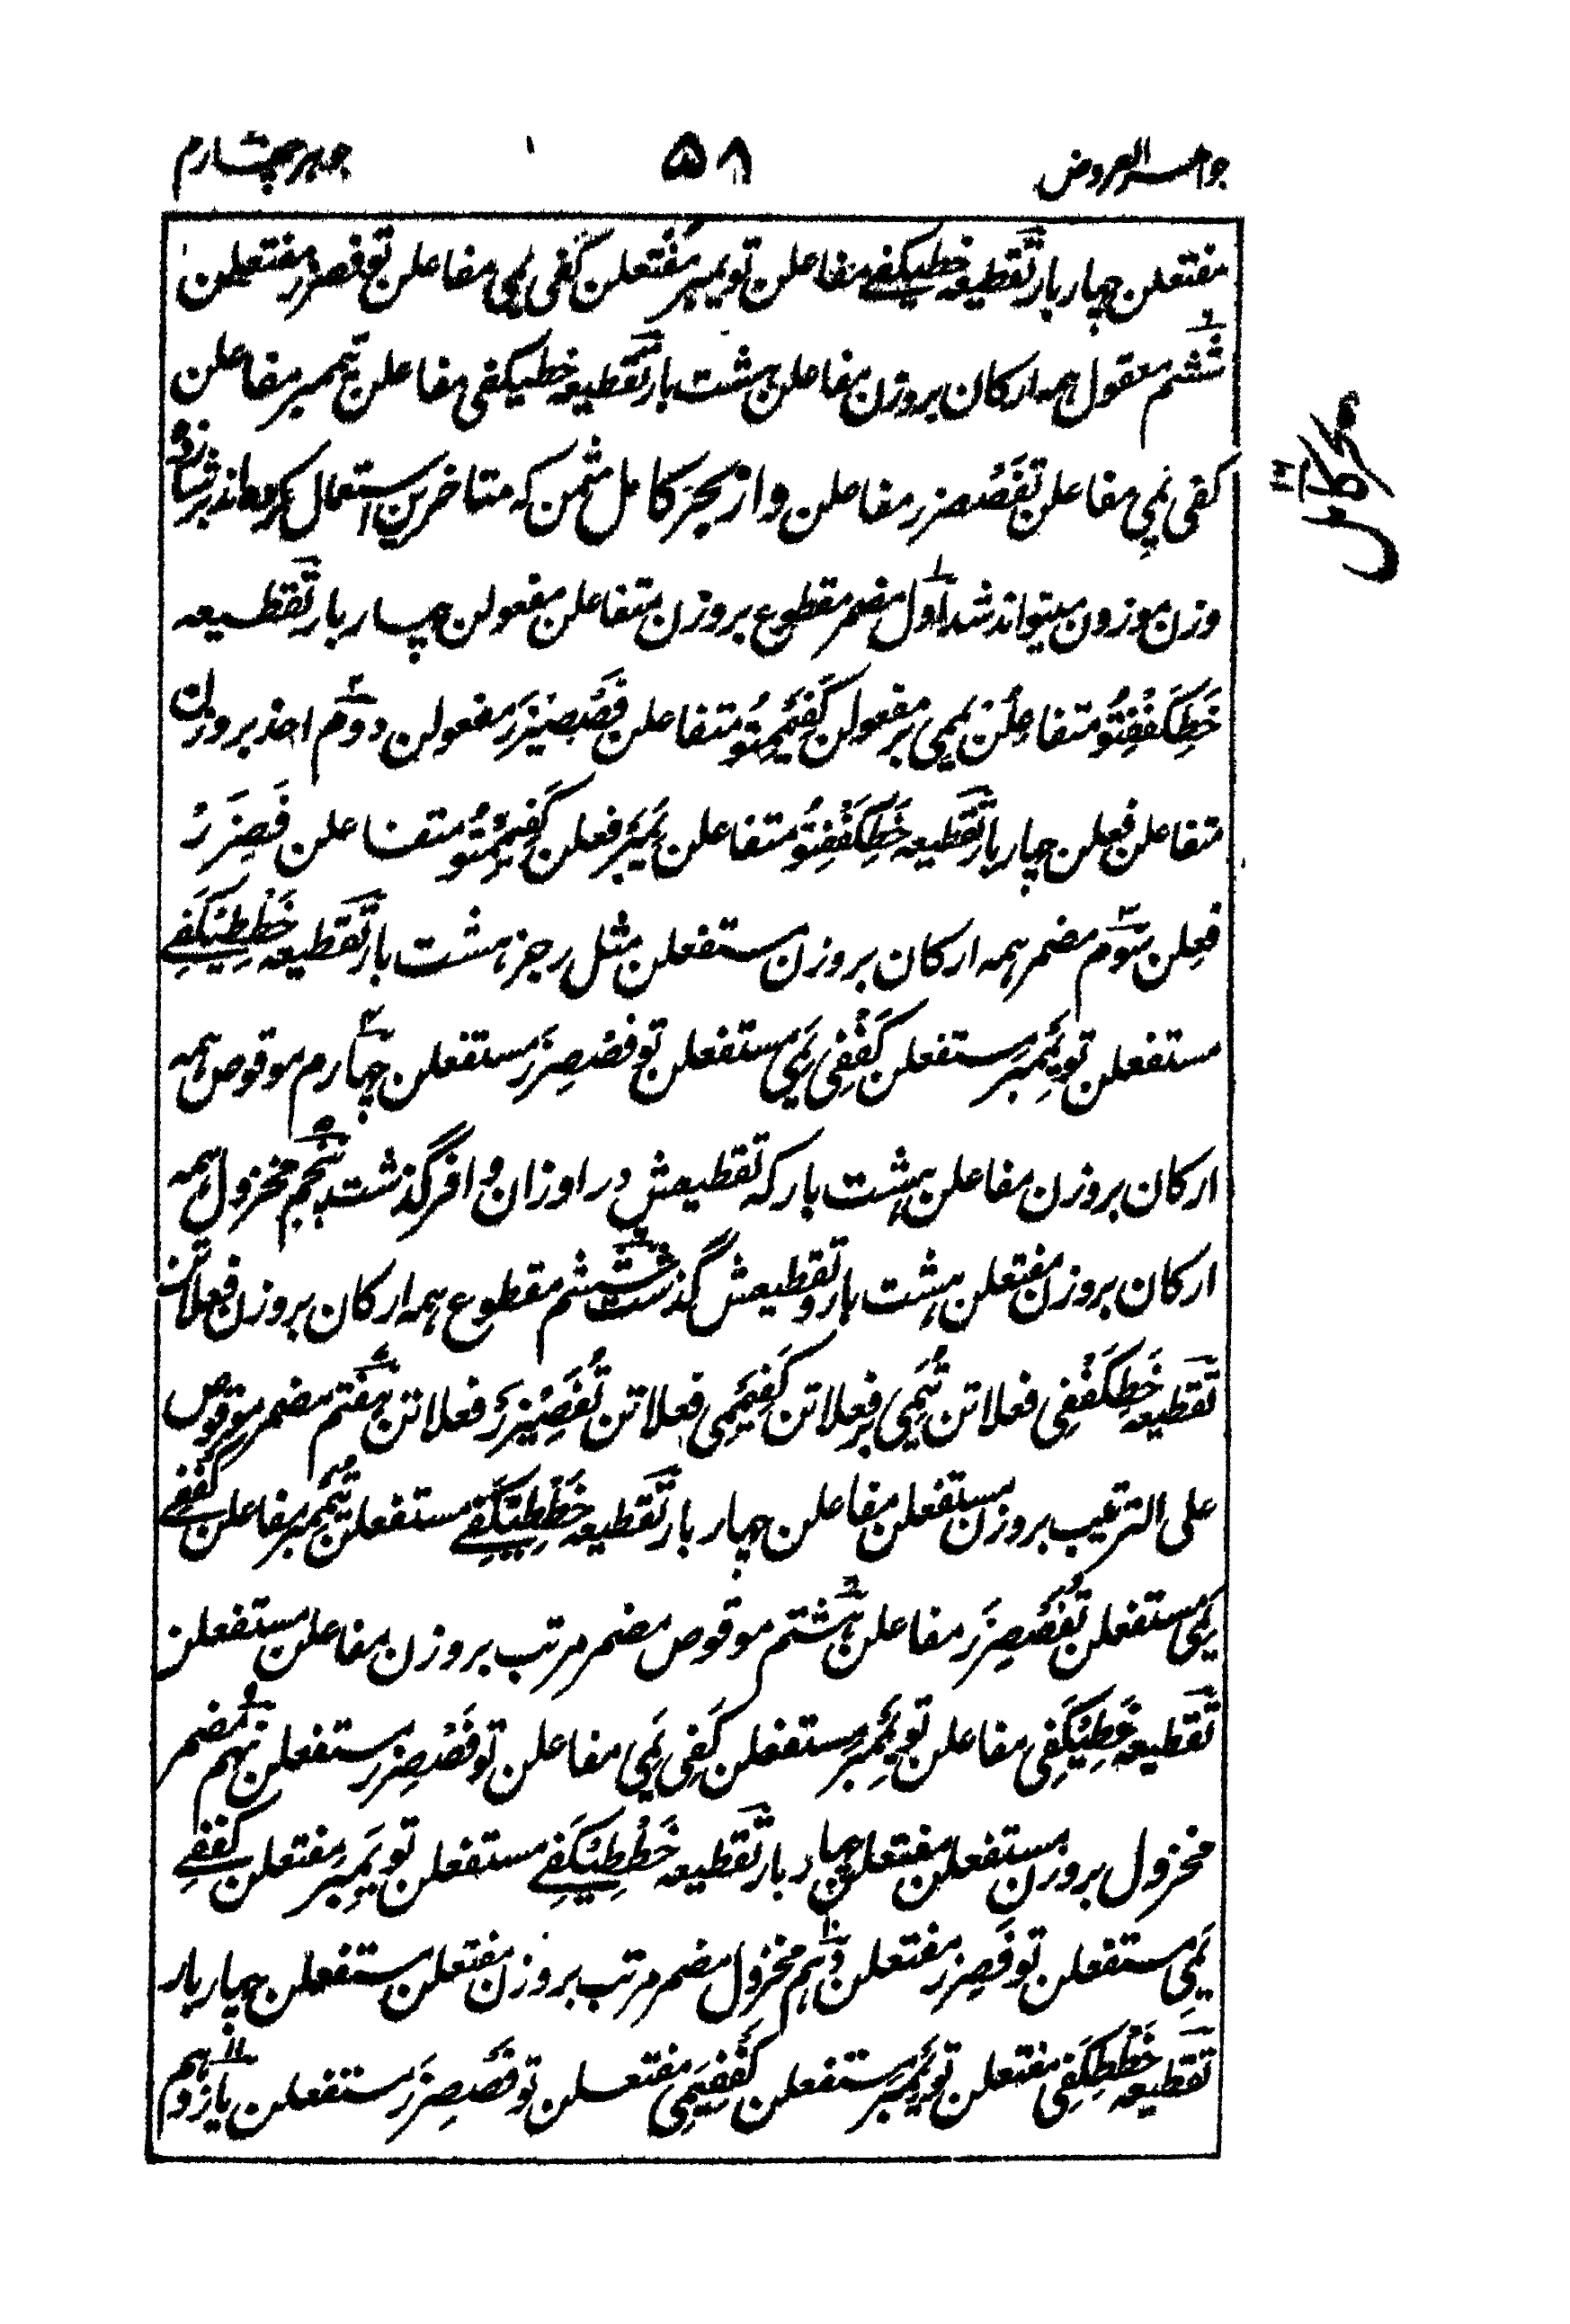 جواهر العروض ۵۸ جوهر چهارم
مفتعلن چهار بار تقطیعه خطیکفے مفاعلن تویمبر مفتعلن کفی یمی مفاعلن تو فصزر مفتعلن
ششم معقول همه ارکان بروزن مفاعلن هشت بار تقطیعه خطیکفی مفاعلن تیمبر مفاعلن
کفی یمی مفاعلن تفصصزر مفاعلن و از بحر کامل مثمن که متاخرین استعمال کرده اند بر شانزده
وزن موزون میتواند شد اول مضمر مقطوع بروزن متفاعلن مفعولن چهار بار تقطیعه
خَطِکَفْفِتُو متفاعلن یمی بر مفعولن کَفِیَمِتُو متفاعلن فصصیزر مفعولن دوم احذ بروزن
متفاعلن فعلن چهار بار تقطیعه خَطِکَفْفِتُو متفاعلن یَمِبَر فعلن کَفِیَمِتُو متفاعلن فَصِزَرْ
فعلن سوم مضمر همه ارکان بروزن مستفعلن مثل رجز هشت بار تقطیعه خَطْطِیکَفِے
مستفعلن تویَمِبَر مستفعلن کَفْفِی یَمِی مستفعلن تو فصصِزَر مستفعلن چهارم موقوص همه
ارکان بروزن مفاعلن هشت بار که تقطیعش در اوزان وافر گذشت پنجم مخزول همه
ارکان بروزن مفتعلن هشت بار و تقطیعش گذشت ششم مقطوع همه ارکان بروزن فعلاتن
تقطیعه خَطِکَفْفِی فعلاتن تُیَمِی بر فعلاتن کَفِیَمِی فعلاتن تُفَصِیزَر فعلاتن هفتم مضمر موقوص
علی الترتیب بروزن مستفعلن مفاعلن چهار بار تقطیعه خَطْطِیکَفِے مستفعلن تُیَمِبَر مفاعلن کففے
یَمِی مستفعلن تُفَصصِزَر مفاعلن هشتم موقوص مضمر مرتب بروزن مفاعلن مستفعلن
تقطیعه خَطِیکَفِی مفاعلن تویَمِبَر مستفعلن کَفِی یَمِی مفاعلن تو فَصْصِزَر مستفعلن نهم مضمر
مخزول بروزن مستفعلن مفتعلن چهار بار تقطیعه خَطْطِیکَفِے مستفعلن تویَمِبَر مفتعلن کففِے
یَمِی مستفعلن تو فَصِزَر مفتعلن دهم مخزول مضمر مرتب بروزن مفتعلن مستفعلن چهار بار
تقطیعه خَطْطِکَفِی مفتعلن تویَمِبَر مستفعلن کَفْفِیَمِی مفتعلن تو فَصصِزَر مستفعلن یازدهم